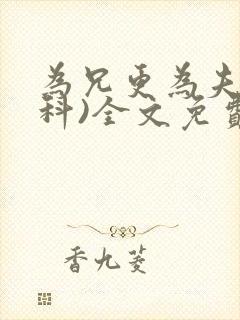 為兄更為夫
科)全文免費
香九菱